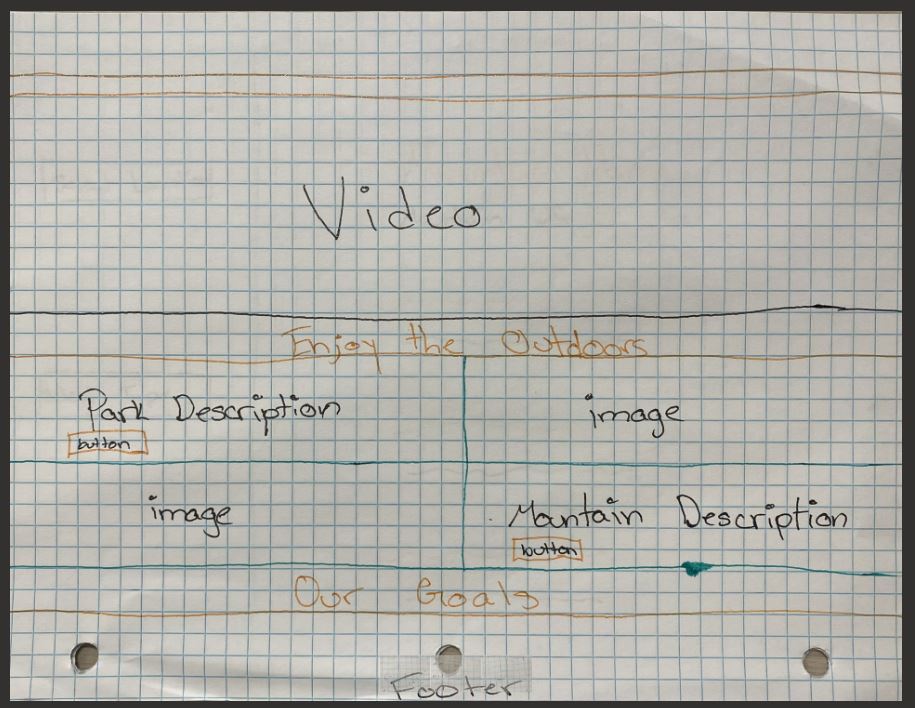 Video
Enjoy the Outdoors
Park Description
button
image
image
Mantain Description
button
Our Goals
Footer